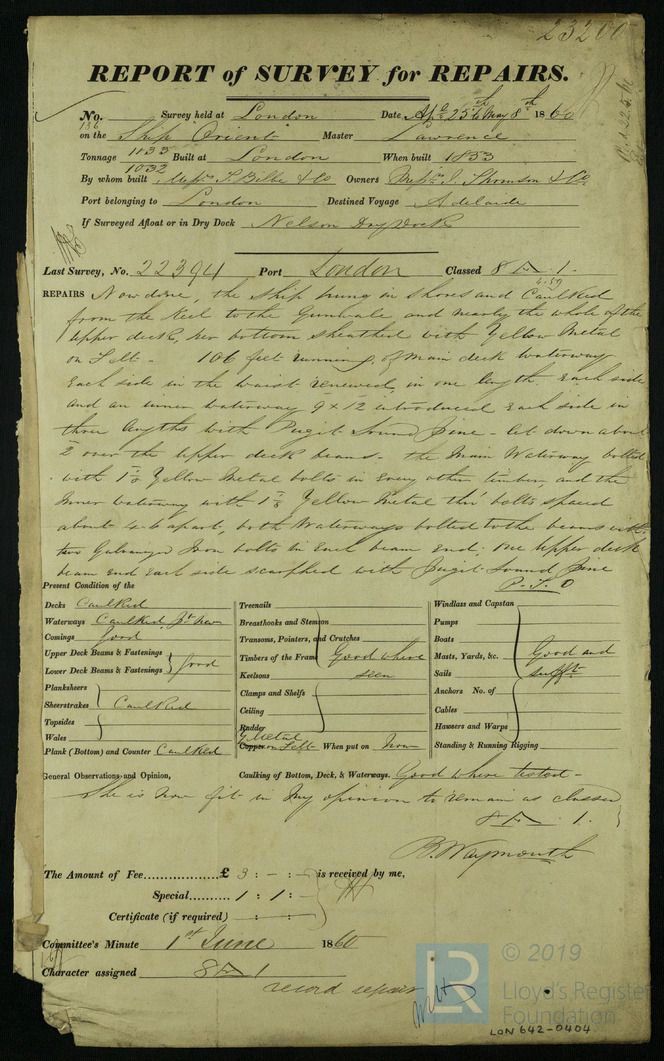 23200
REPORT of SURVEY for REPAIRS.
No. Survey held at London Date, Apl 25th & May 8th 1860
186
on the Ship "Orient" Master Lawrence
Tonnage 1133 Built at London When built 1853
1032
By whom built, Messrs T. Bilbe & Co Owners Messrs J. Thomson & Co.
Port belonging to London Destined Voyage Adelaide
If Surveyed Afloat or in Dry Dock Nelson Dry Dock
Last Survey, No. 22394 Port London Classed 8 1.
4.59
REPAIRS Now done, the Ship hung in shores and Caulked
from the Keel to the Gunwale and nearly the whole of the
Upper deck, her bottom sheathed with Yellow Metal
on Felt - 106 feet running of main deck waterway
Each side in the waist renewed in one length Each side
and an inner waterway 9 x 12 introduced Each side in
three lengths with Pugit Sound Pine - let down about
2 over the upper deck beams - the Main Waterway bolted
with 1 Yellow Metal bolts in Every other timber, and the
Inner waterway with 1 7/8 Yellow Metal thro' bolts spaced
about 4.6 apart, both Waterways bolted to the beams with
two Galvanized Iron bolts in Each beam end: one Upper deck
beam End Each side scarphed with Pugit Sound Pine
P.T.O
Present Condition of the
Decks Caulked
Waterways Caulked pt New
Comings Good
Upper Deck Beams & Fastenings
Lower Deck Beams & Fastenings } Good
Planksheers
Sheerstrakes } Caulked
Topsides
Wales
Plank (Bottom) and Counter Caulked
Treenails
Breasthooks and Stemson
Transoms, Pointers, and Crutches
Timbers of the Frame Good where
Keelsons seen
Clamps and Shelfs
Ceiling
Rudder
Y Metal
Copper on Felt When put on Now
Windlass and Capstan
Pumps
Boats
Masts, Yards, &c. Good and
Sails sufft
Anchors No. of
Cables
Hawsers and Warps
Standing & Running Rigging
General Observations and Opinion, Caulking of Bottom, Deck, & Waterways. Good where tested -
She is now fit in my opinion to remain as classed
8 1.
B. Waymouth
The Amount of Fee £ 3 : - : - is received by me,
Special 1 : 1 : -
Certificate (if required) - : - : -
Committee's Minute 1st June 1860
Character assigned 8 1
record repairs
© 2019
LR Lloyd's Register
Foundation
LON 642-0404